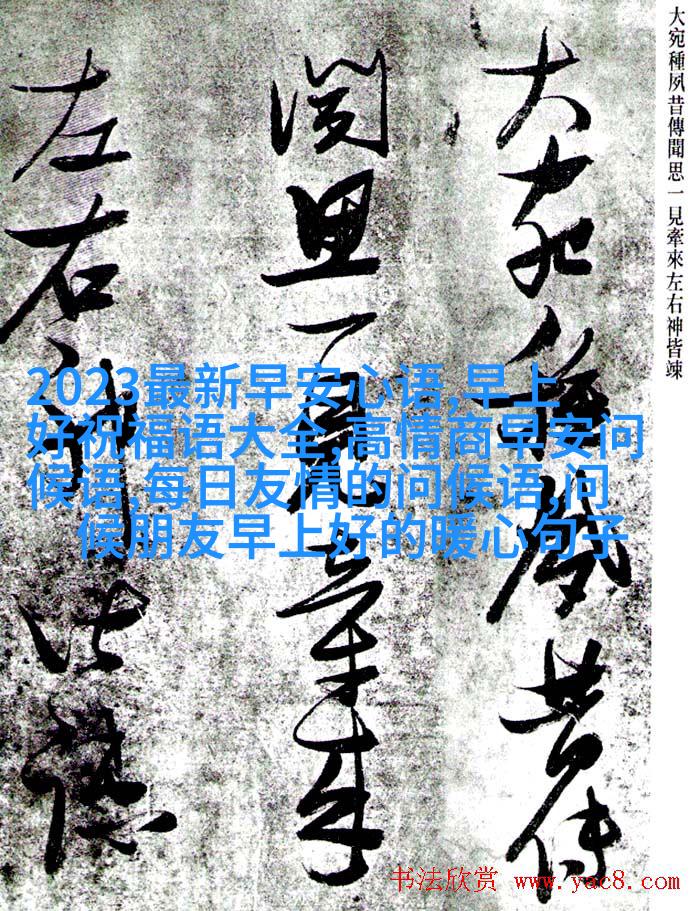 大宛種夙昔傳聞思一見牽來左右神皆竦
大宛種夙昔傳
聞思一見牽來
左右神皆竦
2023最新早安心语,早上
好祝福语大全,高情商早安问
候语,每日友情的问候语,问
候朋友早上好的暖心句子
书法欣赏 www.yac8.com